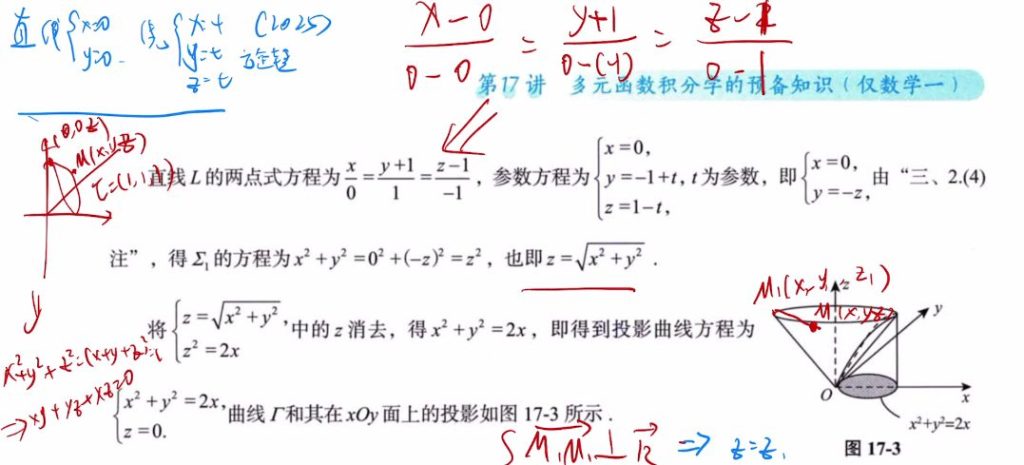 直线{x=0 y=0. 绕{x=t y=t z=t (2025)
x-0/0-0 = y+1/0-(-1) = z-1/0-1
第17讲 多元函数积分学的预备知识(仅数学一)
(0,0,z)
M(x,y,z)
τ=(1,1,1)
直线 L 的两点式方程为 x/0 = y+1/1 = z-1/-1 , 参数方程为 {x=0, y=-1+t, z=1-t, t为参数, 即 {x=0, y=-z, 由“三、2.(4)
注”, 得 Σ₁ 的方程为 x²+y²=0²+(-z)²=z², 也即 z=√(x²+y²) .
将 {z=√(x²+y²), z²=2x 中的 z 消去, 得 x²+y²=2x, 即得到投影曲线方程为
x²+y²+z²=(x+y+z)²
⇒xy+yz+xz=0
{x²+y²=2x, z=0. 曲线 Γ 和其在 xOy 面上的投影如图 17-3 所示.
M₁(x₁,y₁,z₁)
M(x,y,z)
z
y
O
x
x²+y²=2x
图 17-3
M₁M ⊥ k ⇒ z=z₁